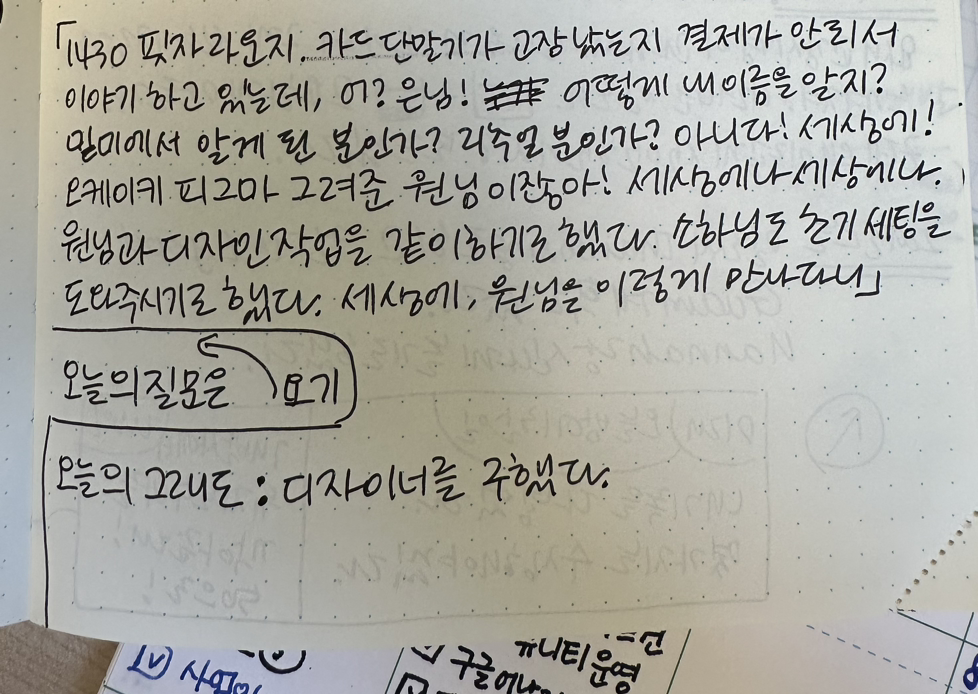 「1430 핏자라운지. 카드단말기가 고장났는지 결제가 안되서
이야기하고 있는데, 어? 은님! 어떻게 내이름을 알지?
밑미에서 알게 된 분인가? 리추얼 분인가? 아니다! 세상에!
오케이키 피그마 그려준 원님이잖아! 세상에나세상에나.
원님과 디자인작업을 같이하기로 했다. 소하님도 초기세팅을
도와주시기로 했다. 세상에, 원님을 이렇게 만나다니」
오늘의질문은 요기
오늘의 그래도 : 디자이너를 구했다.
구글어나
뮤니티운영